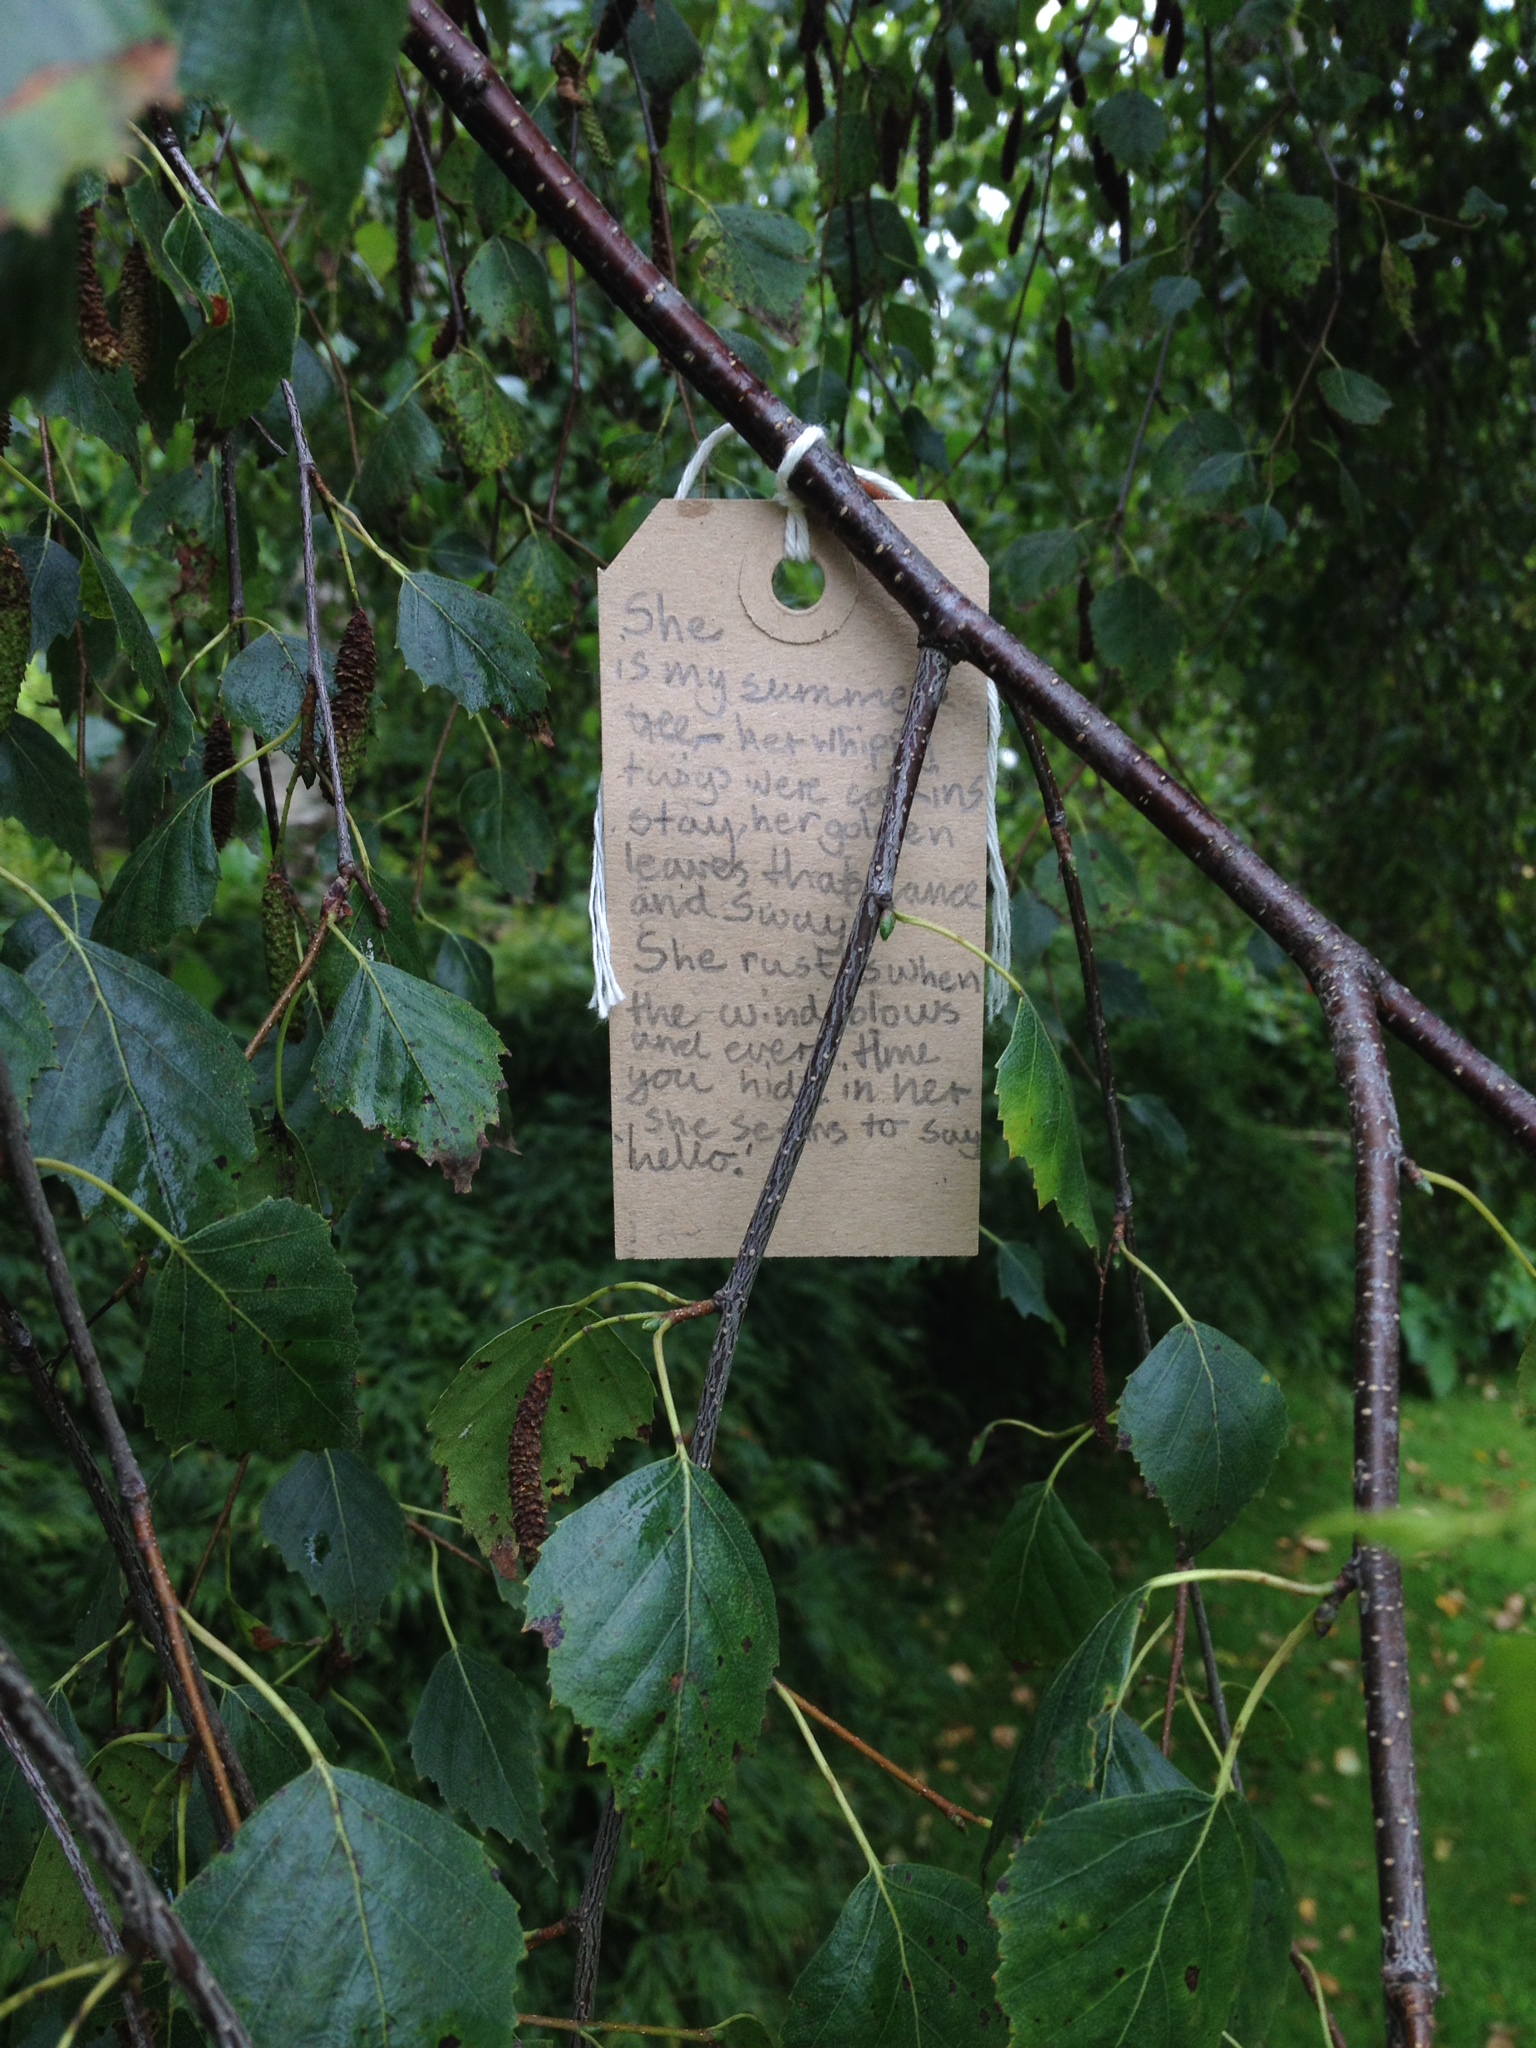 She
is my summer
tree, her whippy
twigs were
stay, her golden
leaves that dance
and sway
She rustles when
the wind blows
and every time
you hide in her
she seems to say
hello!